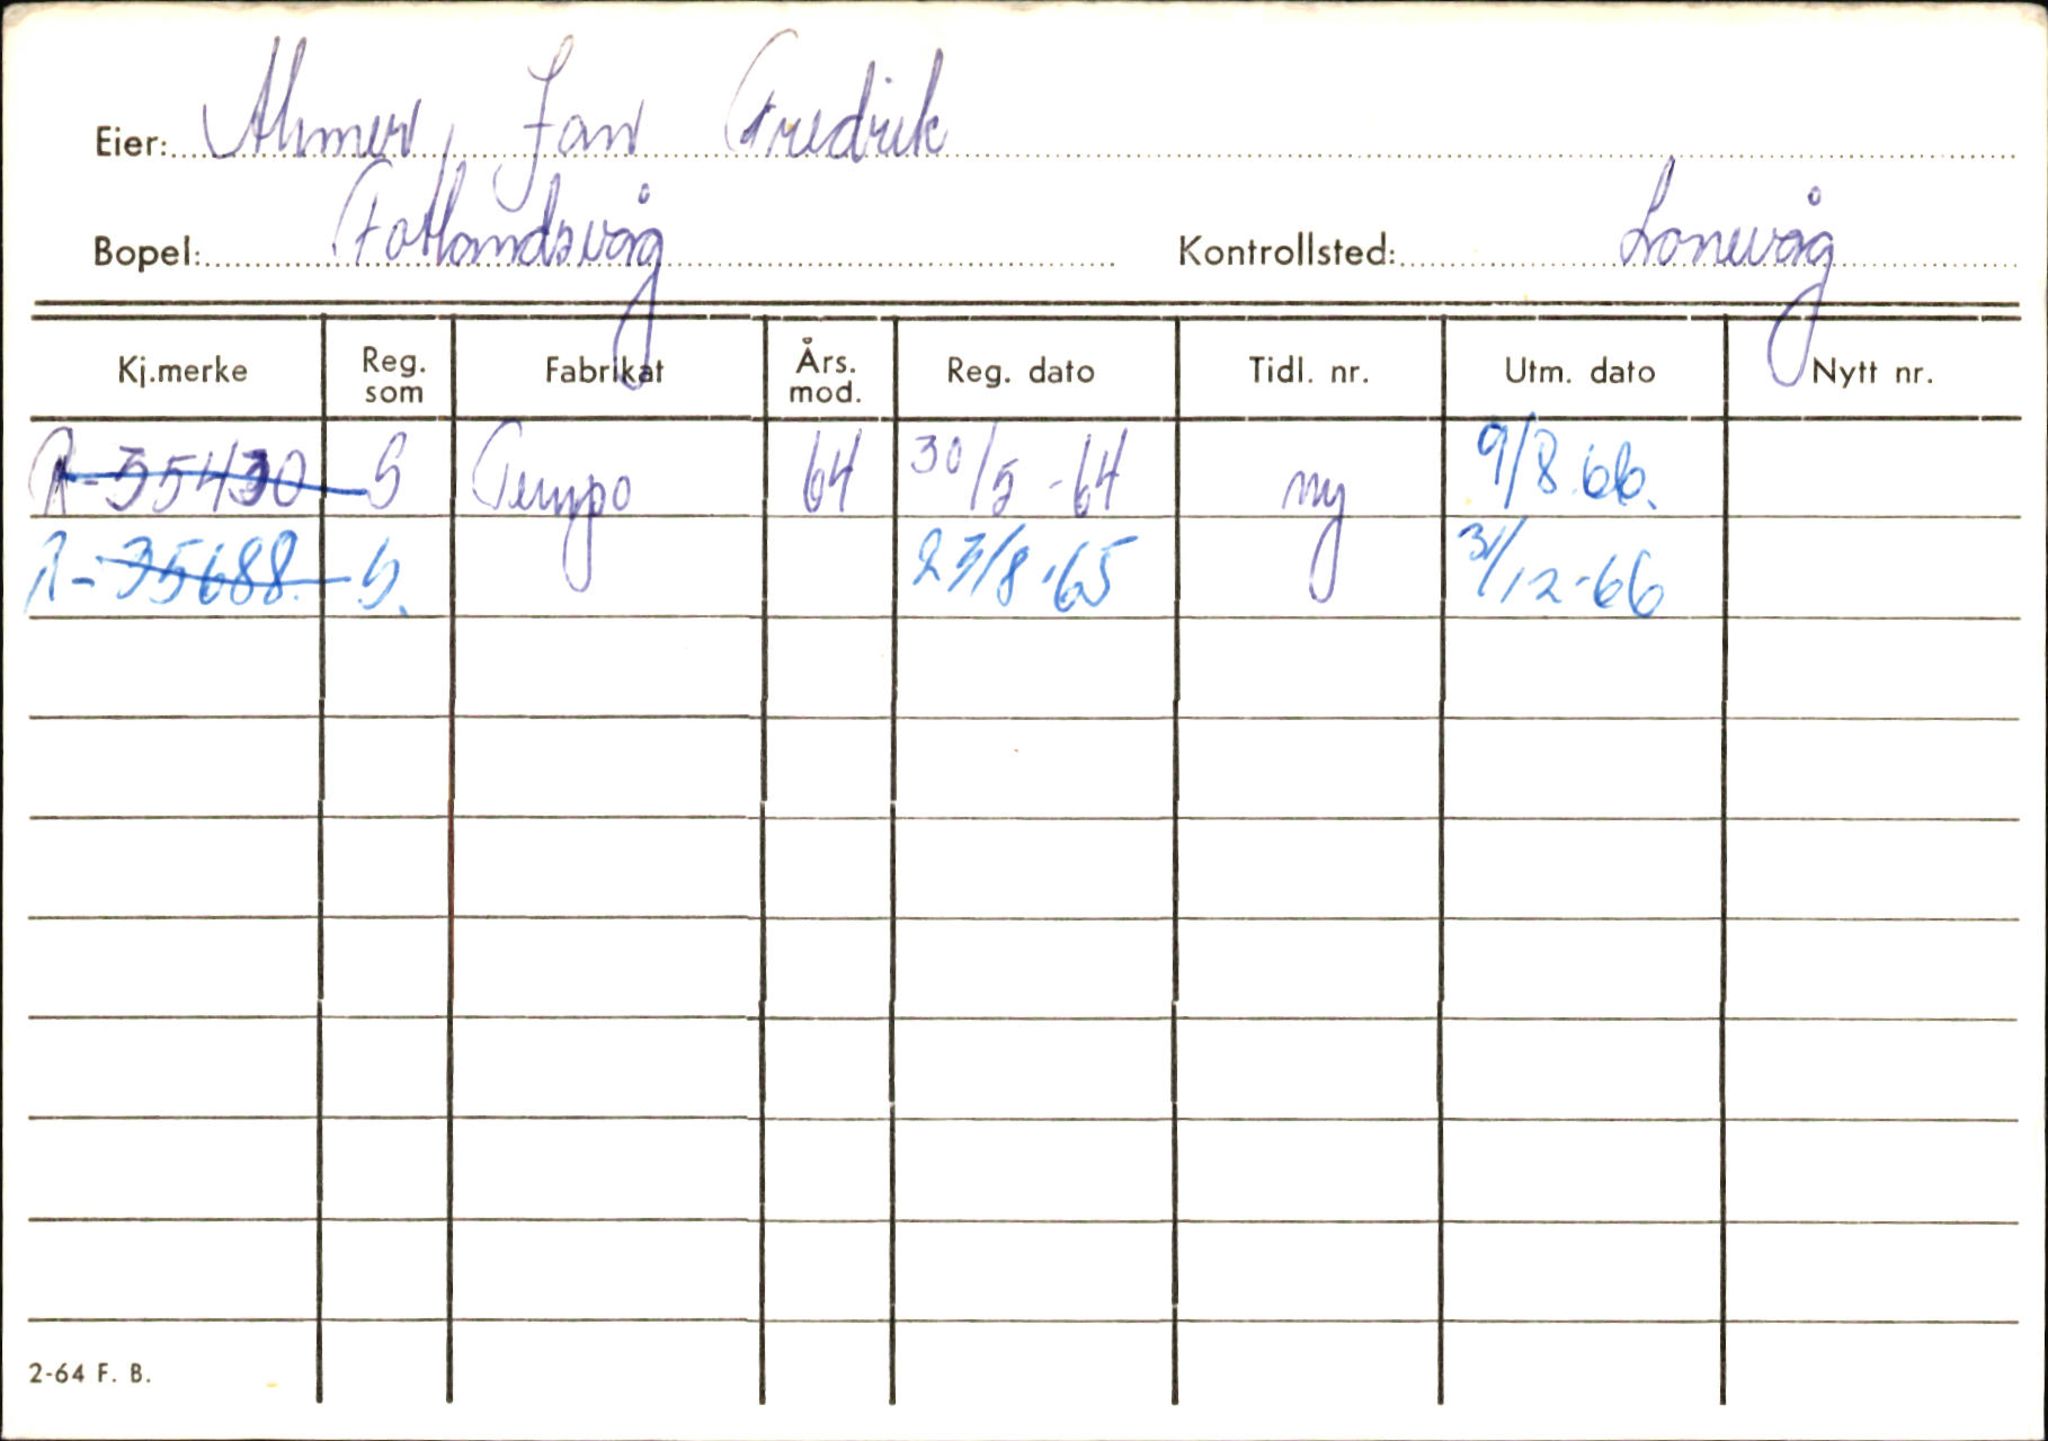 Eier: Ahmer, Jan Fredrik
Bopel: Fotlandsvåg Kontrollsted: Lonevåg
Kj.merke Reg. som Fabrikat Års. mod. Reg. dato Tidl. nr. Utm. dato Nytt nr.
R-55430 S Tempo 64 30/5-64 ny 9/8.66.
R-35688. S. 23/8-65 31/12-66
2-64 F. B.